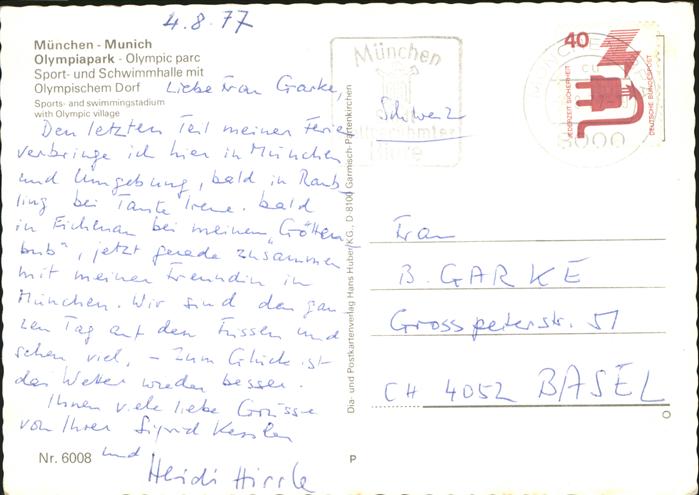 4.8.77
München - Munich
Olympiapark - Olympic parc
Sport- und Schwimmhalle mit
Olympischem Dorf
Sports- and swimmingstadium
with Olympic village
Liebe Frau Garke,
Den letzten Teil meiner Ferien
verbringe ich hier in München
und Umgebung, bald in
bei Tante Irene, bald
in bei meinem "Götten
bub", jetzt gerade zusammen
mit meiner Freundin in
München. Wir sind den gan
zen Tag auf den Füssen und
sehen viel, - zum Glück ist
das Wetter wieder besser.
Ihnen viele liebe Grüsse
von Ihrer Sigrid Kessler
und Heidi
Nr. 6008
Dia- und Postkartenverlag Hans Huber KG., D 8100 Garmisch-Partenkirchen
P
München
40
JEDERZEIT SICHERHEIT
DEUTSCHE BUNDESPOST
8000
Schweiz
Frau
B. GARKE
Grosspeterstr. 51
CH 4052 BASEL